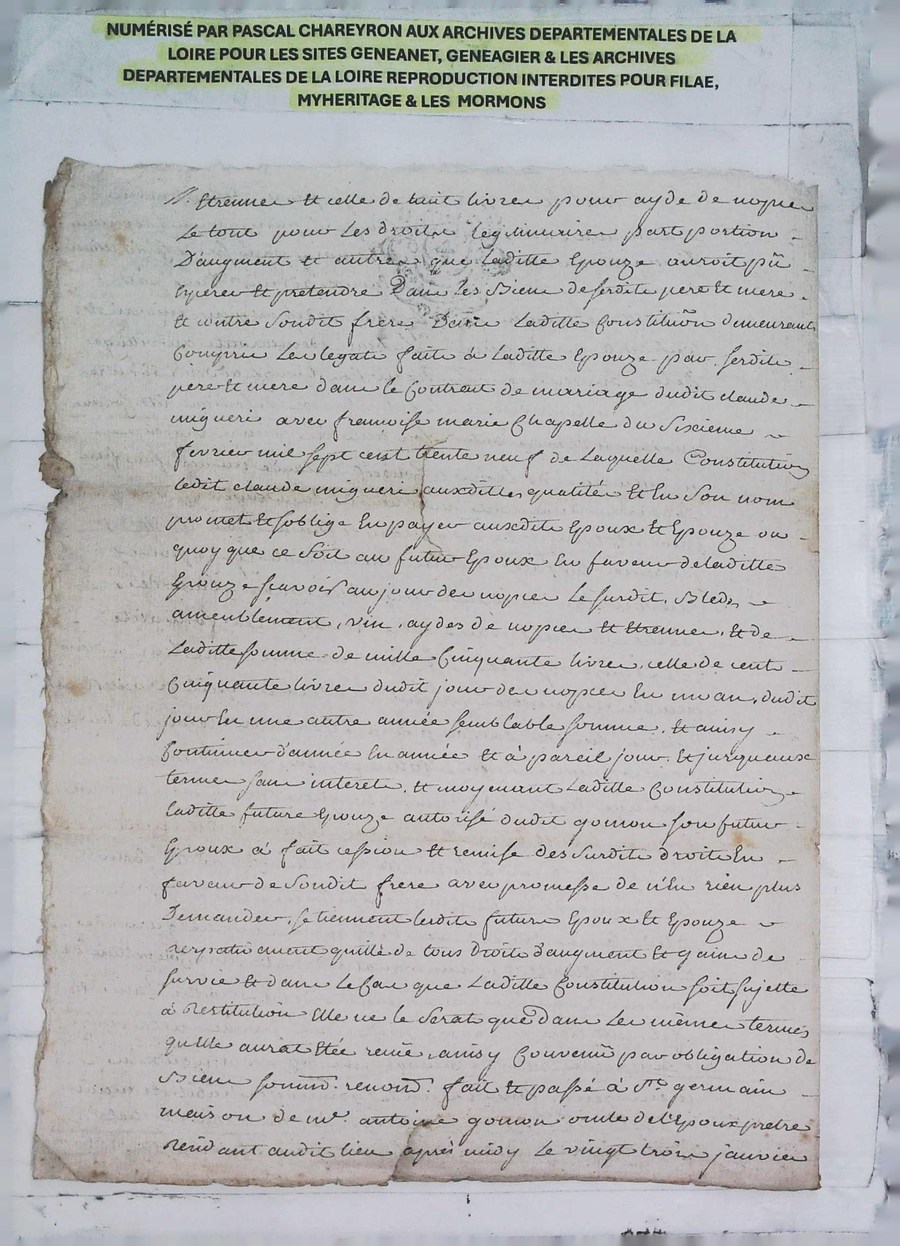 NUMÉRISÉ PAR PASCAL CHAREYRON AUX ARCHIVES DEPARTEMENTALES DE LA
LOIRE POUR LES SITES GENEANET, GENEAGIER & LES ARCHIVES
DEPARTEMENTALES DE LA LOIRE REPRODUCTION INTERDITES POUR FILAE,
MYHERITAGE & LES MORMONS
Etrennes et celle de huit livres pour ayde de nopces
Le tout pour Les droits legitimaires part portion
D'augment et autres que Laditte Epouze auroit pû
Esperer et pretendre Dans les Biens desesdits pere et mere
Et contre Sondit frere Dans Laditte Constitûõn demeurants
Compris Les legats faits à Laditte Epouze par sesdits
pere et mere dans le Contract de mariage dudit claude
migneri avec francoise marie Chapelle du Sixieme
fevrier mil sept cent trente neuf de Laquelle Constitution
ledit claude migneri auxdittes qualités Et En Son nom
promet Et soblige En payer auxdits Epoux Et Epouze ou
quoy que ce Soit au futur Epoux En faveur de laditte
Epouze scavoir au jour des nopces Le susdit Bled
ameublement, vin, aydes de nopces Et Etrennes, Et de
Laditte somme de mille Cinquante livres, celle de cent
Cinquante livres dudit jour des nopces En un an, dudit
jour En une autre année semblable somme, Et ainsy
Continuer d'année En année Et à pareil jour Et jusqueaux
termes sans interets, Et moyenant Laditte Constitution
laditte future Epouze autorisé dudit gomon son futur
Epoux à fait cession Et remise des Susdits droits En
faveur de Sondit frere avec promesse de n'En rien plus
Demander, se tiennent lesdits futurs Epoux Et Epouze
respectivement quitte de tous Droits d'augment Et gains de
survie Et dans Le Cas que Laditte Constitution soit sujette
à Restitution Elle ne le Serat que Dans Les mêmes termes
quelle aurat Etée remie, ainsy Convenû par obligation de
Biens soumõ. renonõ. fait Et passé à St. germain
maison de mr. antoine gomon oncle de l'Epoux pretre
Residant audit lieu après midy Le vingt trois janvier